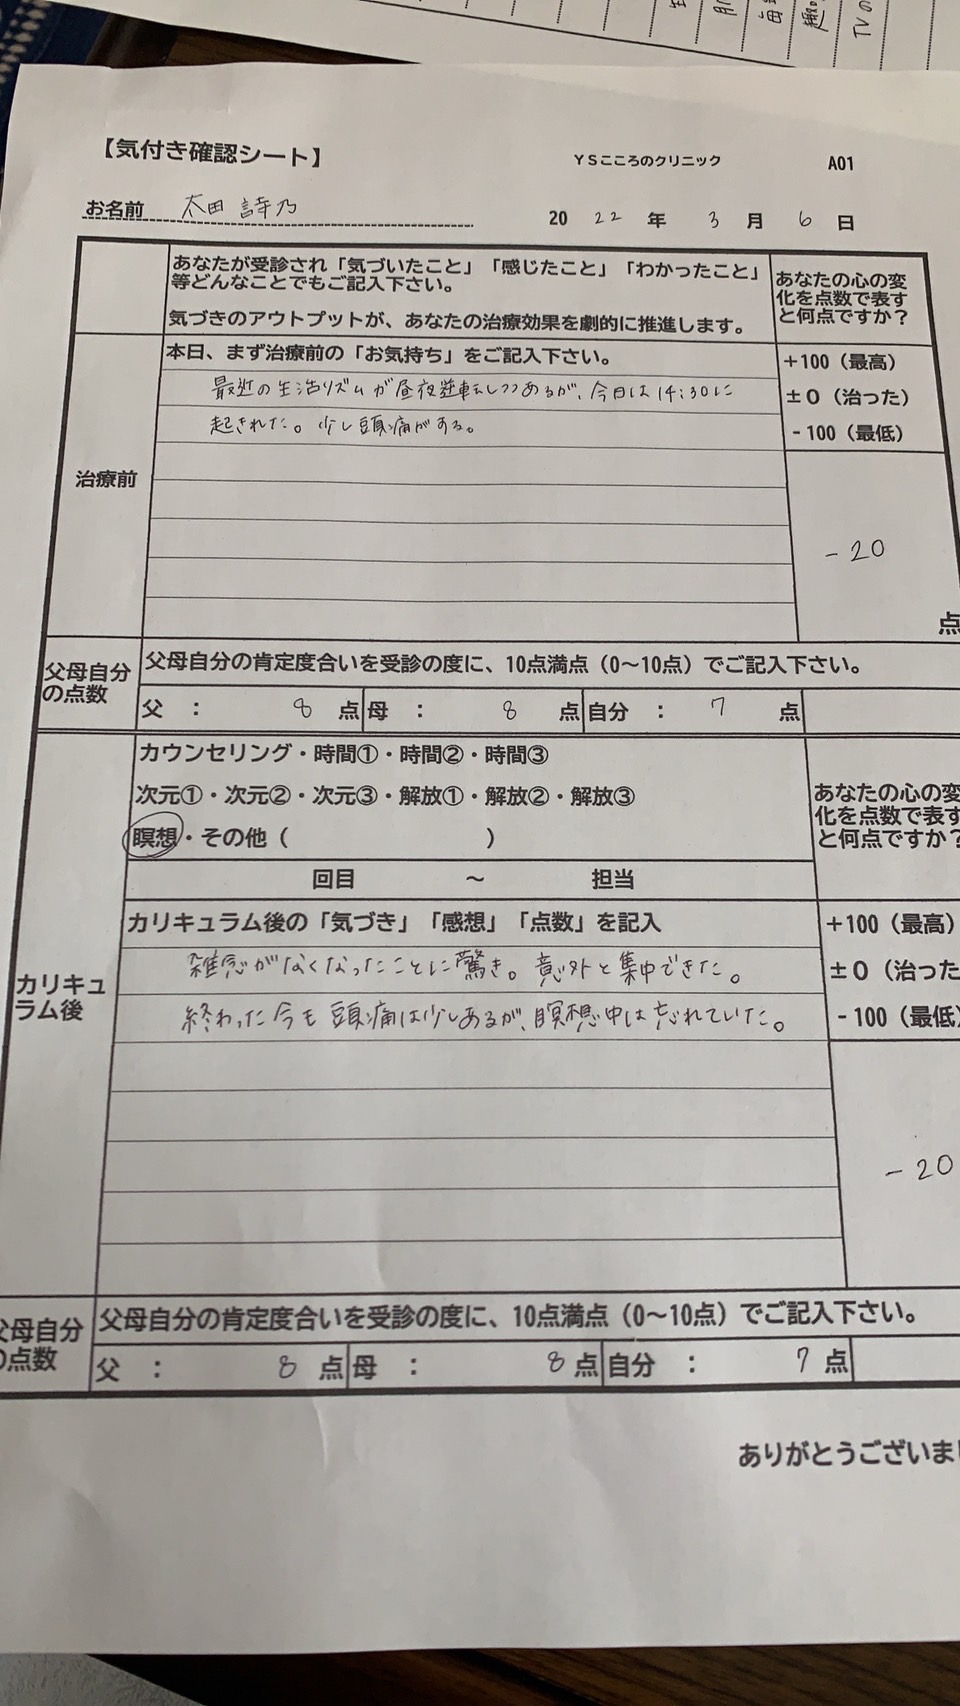 【気付き確認シート】 YSこころのクリニック A01
お名前 太田 詩乃 20 22 年 3 月 6 日
あなたが受診され「気づいたこと」「感じたこと」「わかったこと」
等どんなことでもご記入下さい。
気づきのアウトプットが、あなたの治療効果を劇的に推進します。
あなたの心の変
化を点数で表す
と何点ですか？
治療前
本日、まず治療前の「お気持ち」をご記入下さい。
最近の生活リズムが昼夜逆転しつつあるが、今日は14:30に
起きれた。少し頭痛がある。
+100（最高）
±0（治った）
-100（最低）
-20
点
父母自分
の点数
父母自分の肯定度合いを受診の度に、10点満点（0〜10点）でご記入下さい。
父 ： 8 点 母 ： 8 点 自分 ： 7 点
カウンセリング・時間①・時間②・時間③
次元①・次元②・次元③・解放①・解放②・解放③
瞑想・その他（ ）
あなたの心の変
化を点数で表す
と何点ですか？
回目 〜 担当
カリキュ
ラム後
カリキュラム後の「気づき」「感想」「点数」を記入
雑念がなくなったことに驚き。意外と集中できた。
終わった今も頭痛は少しあるが、瞑想中は忘れていた。
+100（最高）
±0（治った
-100（最低）
-20
父母自分
の点数
父母自分の肯定度合いを受診の度に、10点満点（0〜10点）でご記入下さい。
父 ： 8 点 母 ： 8 点 自分 ： 7 点
ありがとうございまし
TV